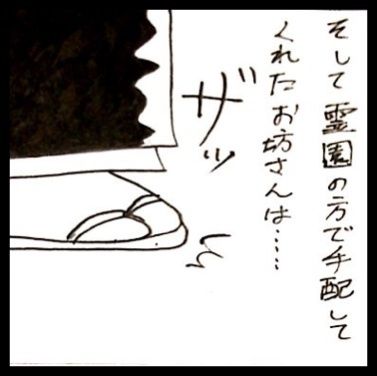 そして霊園の方で手配して
くれたお坊さんは……
ザッ